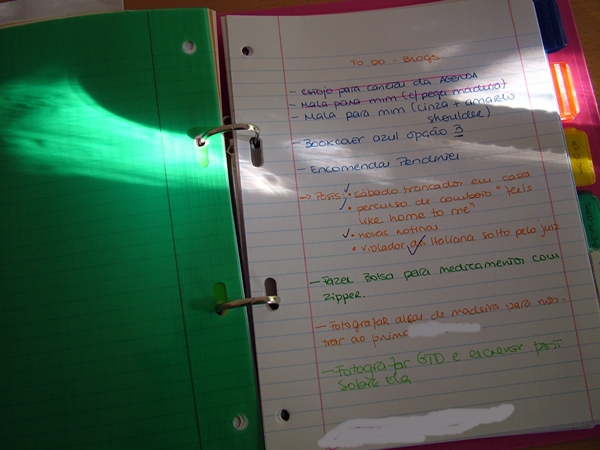 TO DO - Blogs
- Estojo para canetas da AGENDA
- Mala para mim (c/ pega madeira)
- Mala para mim (cinza + amarelo
shoulder)
- Bookcover azul opção 3
- Encomendar Pendurier
→ Posts: • sábado trancador em casa
• percurso de comboio "feels
like home to me"
• novas rotinas
• violador da italiana solto pelo juiz
- Fazer Bolsa para medicamentos com
zipper.
- Fotografar alças de madeira para mos-
trar ao primo
- Fotografar GTD e escrever post
sobre ela